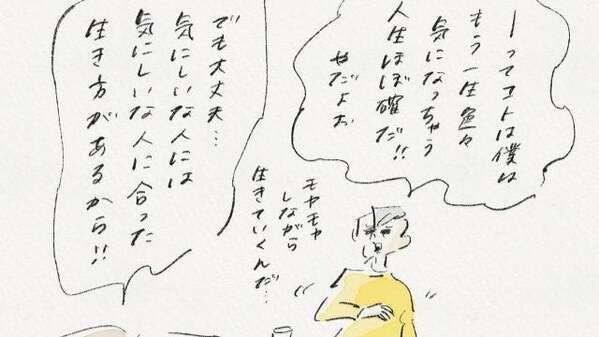 ーってコトは僕は
もう一生色々
気になっちゃう
人生ほぼ確だ!!
やだよお
モヤモヤ
しながら
生きていくんだ…
でも大丈夫…
気にしいな人には
気にしいな人に合った
生き方があるから!!